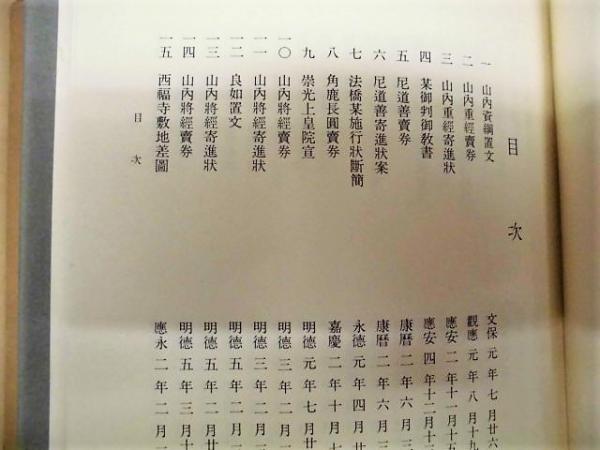 目次
一 山內資綱置文 文保元年七月廿六
二 山內重經賣券 觀應元年八月十九
三 山內重經寄進狀 應安二年十一月十五
四 某御判御教書 應安四年十二月十三
五 尼道善賣券 康曆二年六月三
六 尼道善寄進狀案 康曆二年六月三
七 法橋某施行狀斷簡 永德元年四月廿
八 角鹿長圓賣券 嘉慶二年十月七
九 崇光上皇院宣 明德元年七月廿
一〇 山內將經賣券 明德三年二月
一一 山內將經寄進狀 明德三年二月
一二 良如置文 明德五年二月
一三 山內將經寄進狀 明德五年二月廿
一四 山內將經賣券 明德五年三月十
一五 西福寺敷地差圖 應永二年二月
目次